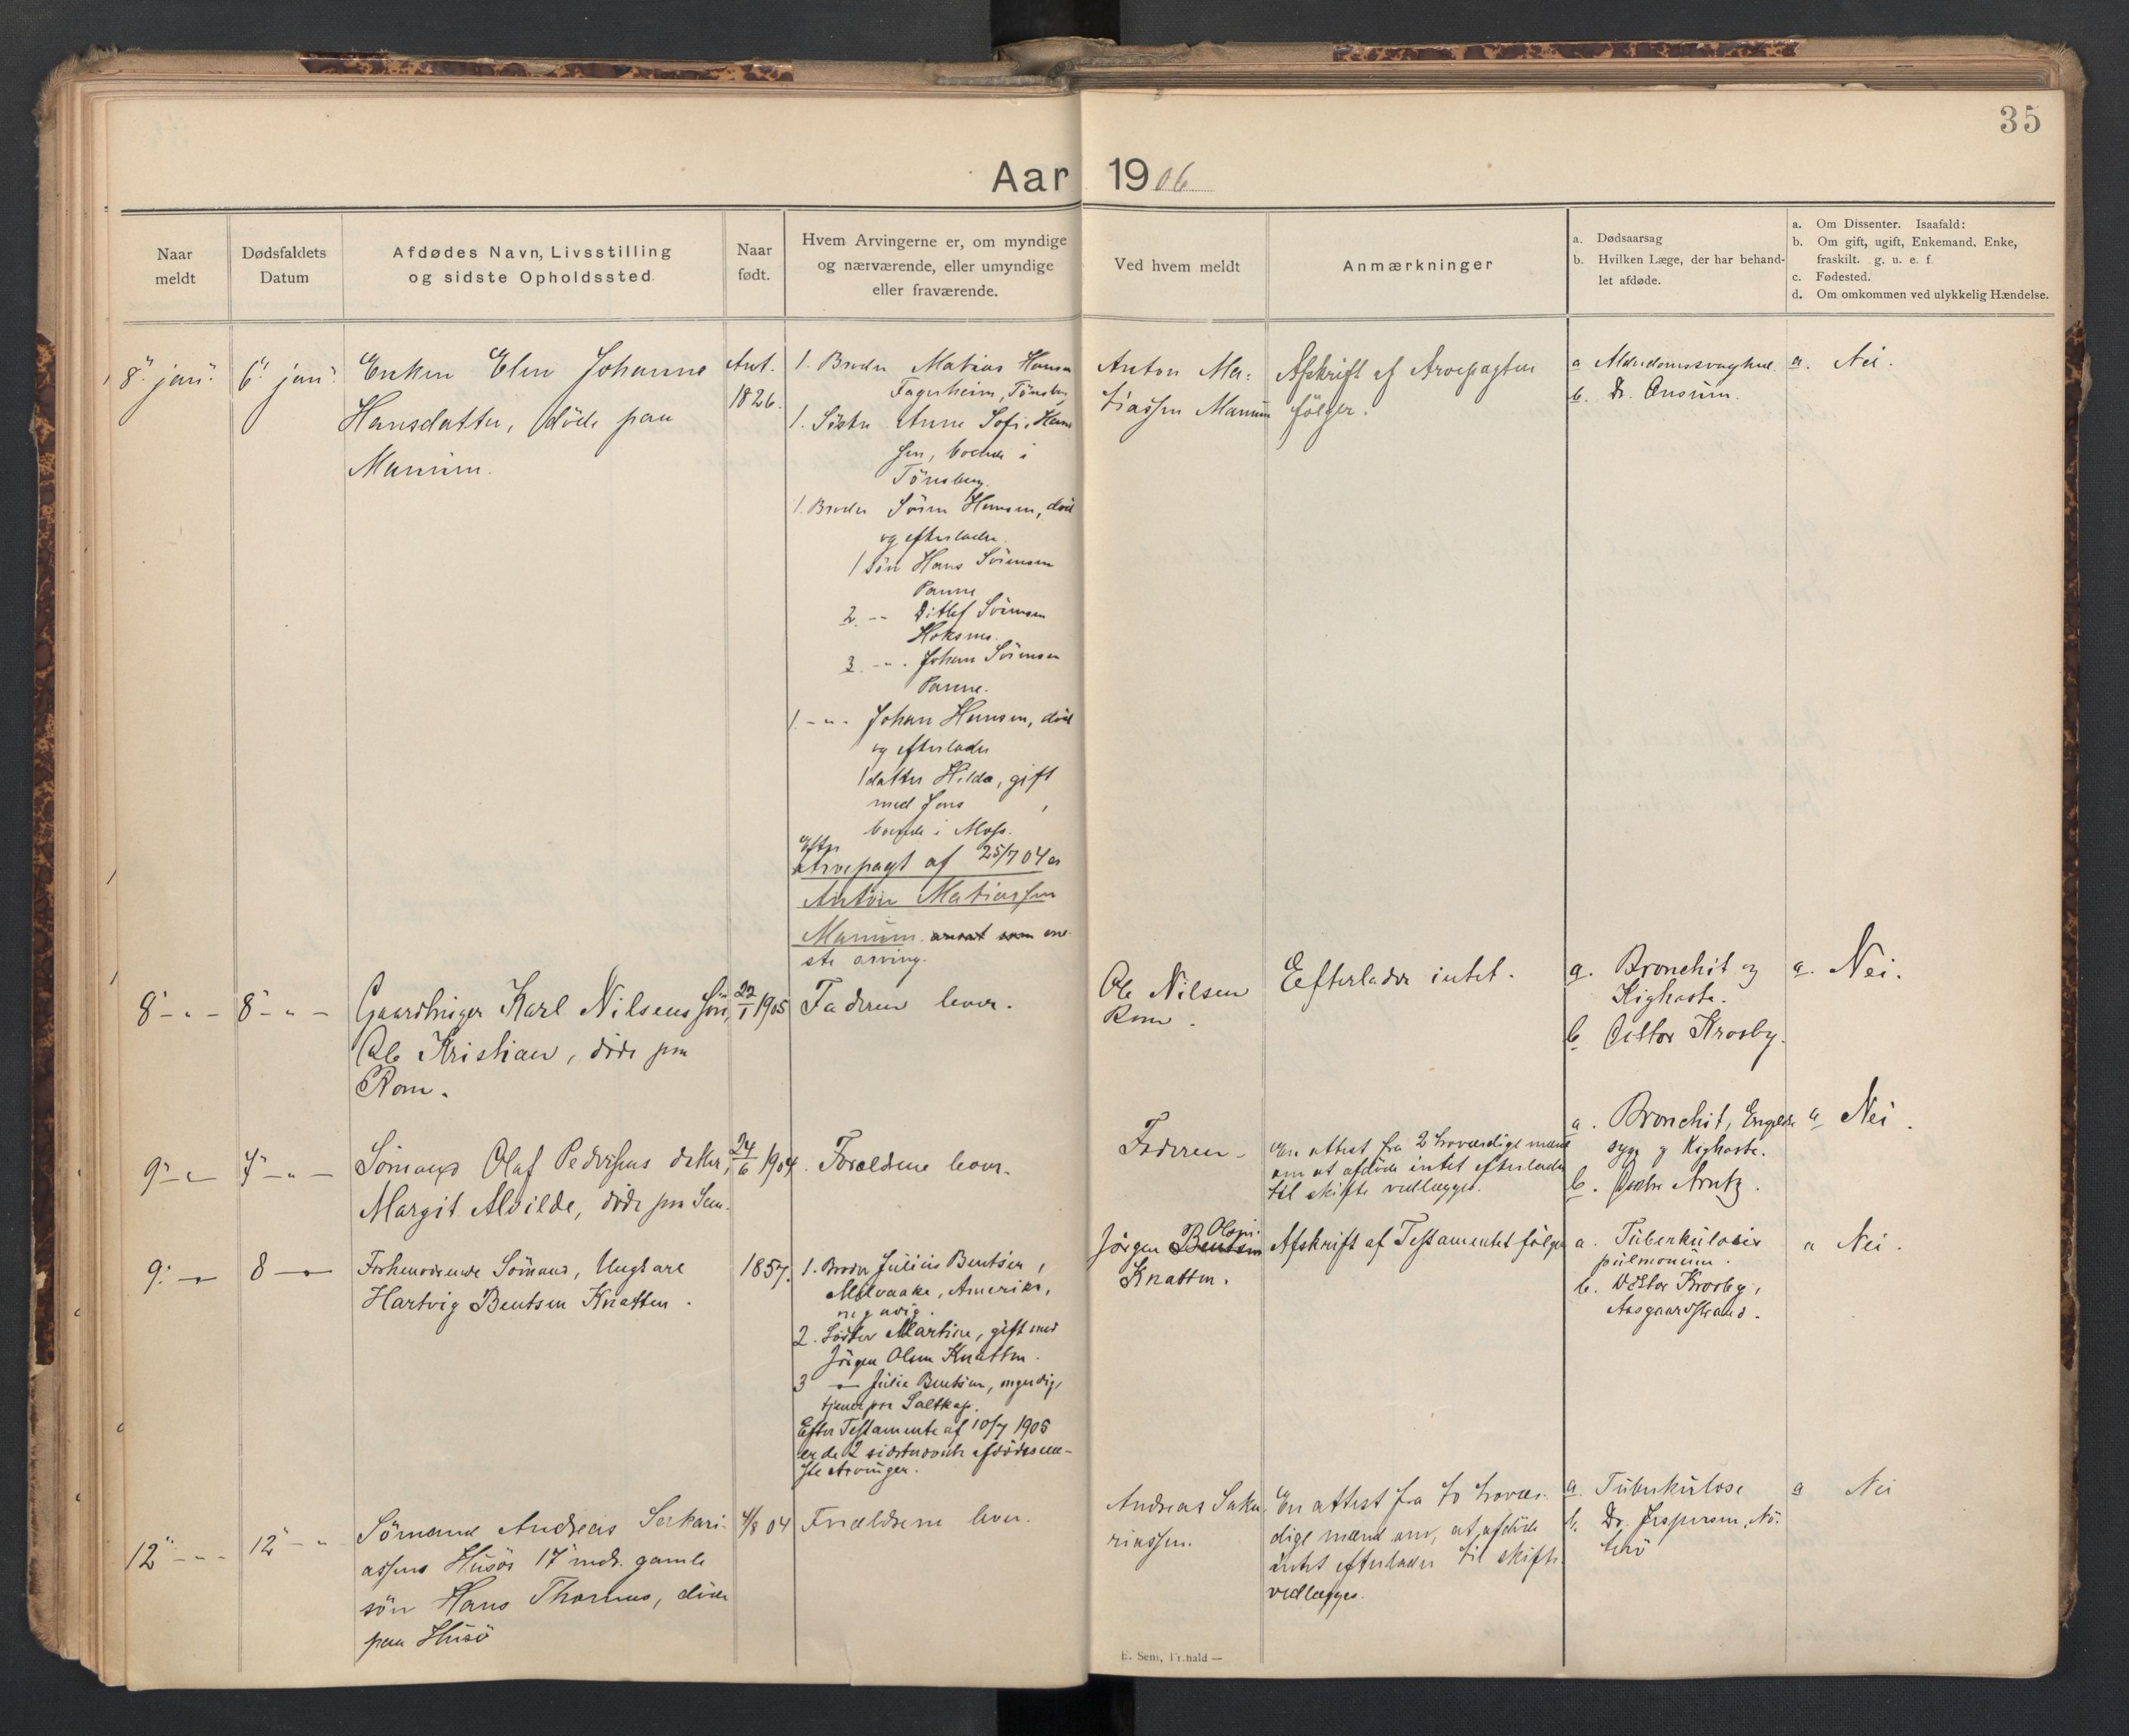 35
Aar 1906
Naar
meldt
Dødsfaldets
Datum
Afdødes Navn, Livsstilling
og sidste Opholdssted.
Naar
født.
Hvem Arvingerne er, om myndige
og nærværende, eller umyndige
eller fraværende.
Ved hvem meldt
Anmærkninger
a. Dødsaarsag
b. Hvilken Læge, der har behand-
let afdøde.
a. Om Dissenter. Isaafald:
b. Om gift, ugift, Enkemand. Enke,
fraskilt. g. u. e. f.
c. Fødested.
d. Om omkommen ved ulykkelig Hændelse.
8. jan.
6. jan.
Enken Elen Johanne
Hansdatter, døde paa
Manum.
Ant.
1826.
1. Broder Matias Hansen
Fagerheim, Tönsberg
1. Söster Anne Sofie Han
sen, boende i
Tönsberg.
1. Broder Sören Hansen, död
og efterlader.
1 Sön Hans Sörensen
Panne
2. -- Ditlef Sörensen
3. -"- Johan Sörensen
Panne.
1 -"- Johan Hansen, död
og efterlader
1 datter Hilda, gift
med Jens ,
boende i Moss.
Efter
Arvepagt af 25/7 04 er
Anton Matiassen
Manum ene
ste arving.
Anton Ma=
tiassen Manum
Afskrift af Arvepagten
følger.
a Alderdomssvaghed
b. Dr. Ansum.
a. Nei.
8 -"-
8 -"-
Gaardbruger Karl Nilsens søn,
Ole Kristian, døde paa
Rom.
22/1 1905
Faderen lever.
Ole Nilsen
Rom.
Eefterlader intet.
a. Bronchit og
Kighoste.
b Doktor Krosby.
a. Nei.
9 -"-
7 -"-
Sømand Olaf Pedersens datter,
Margit Alvilde, døde paa Sem.
24/6 1904.
Forældrene lever.
Faderen -
En attest fra 2 troværdige mænd
om at afdøde intet efterlader
til skifte vedlægges.
a. Bronchit, Engelsk
syge og Kighoste.
b. Doktor Arntz.
a Nei.
9. -"-
8 -"-
Forhenværende Sömand, Ungkarl
Hartvig Bentsen Knatten.
1857.
1. Broder Julius Bentsen,
Milvaake, Amerika,
myndig.
2. Söster Martine, gift med
Jörgen Olsen Knatten.
3 -"- Julie Bentsen, myndig,
tjener paa Saltkop.
Efter Testamente af 10/7 1905
er de 2 sidstnævnte afdødes ene-
ste Arvinger.
Jörgen Bentsen Olsen
Knatten.
Afskrift af Testamentet følger
a. Tüberkülosis
pülmonüm.
b. Doktor Krosby,
Aasgaardstrand.
a Nei.
12 -"-
12 -"-
Sömand Andreas Sakari-
assens Husö 17 mdr. gamle
sön Hans Thomas, döde
paa Husö
4/8 04
Forældrene lever.
Andreas Saka
riassen.
En attest fra to trovær-
dige mænd om, at afdöde
intet efterlader til skifte
vedlægges.
a. Tuberkulose
b. Dr. Jespersen, Nö-
terö
a Nei
E. Sem, Fr.hald —